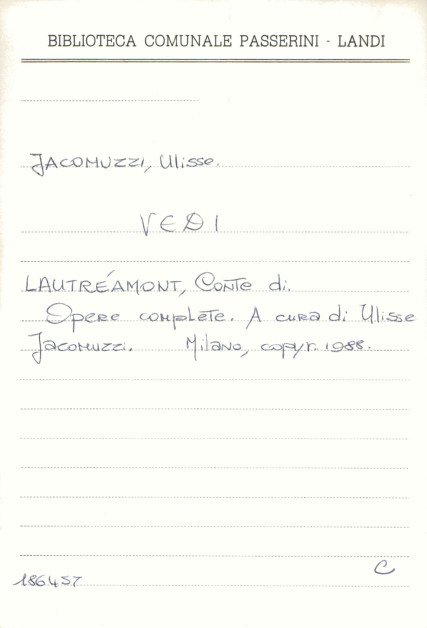 BIBLIOTECA COMUNALE PASSERINI - LANDI
JACOMUZZI, Ulisse.
VEDI
LAUTRÉAMONT, Conte di.
Opere complete. A cura di Ulisse
Jacomuzzi. Milano, copyr. 1988.
C
186457